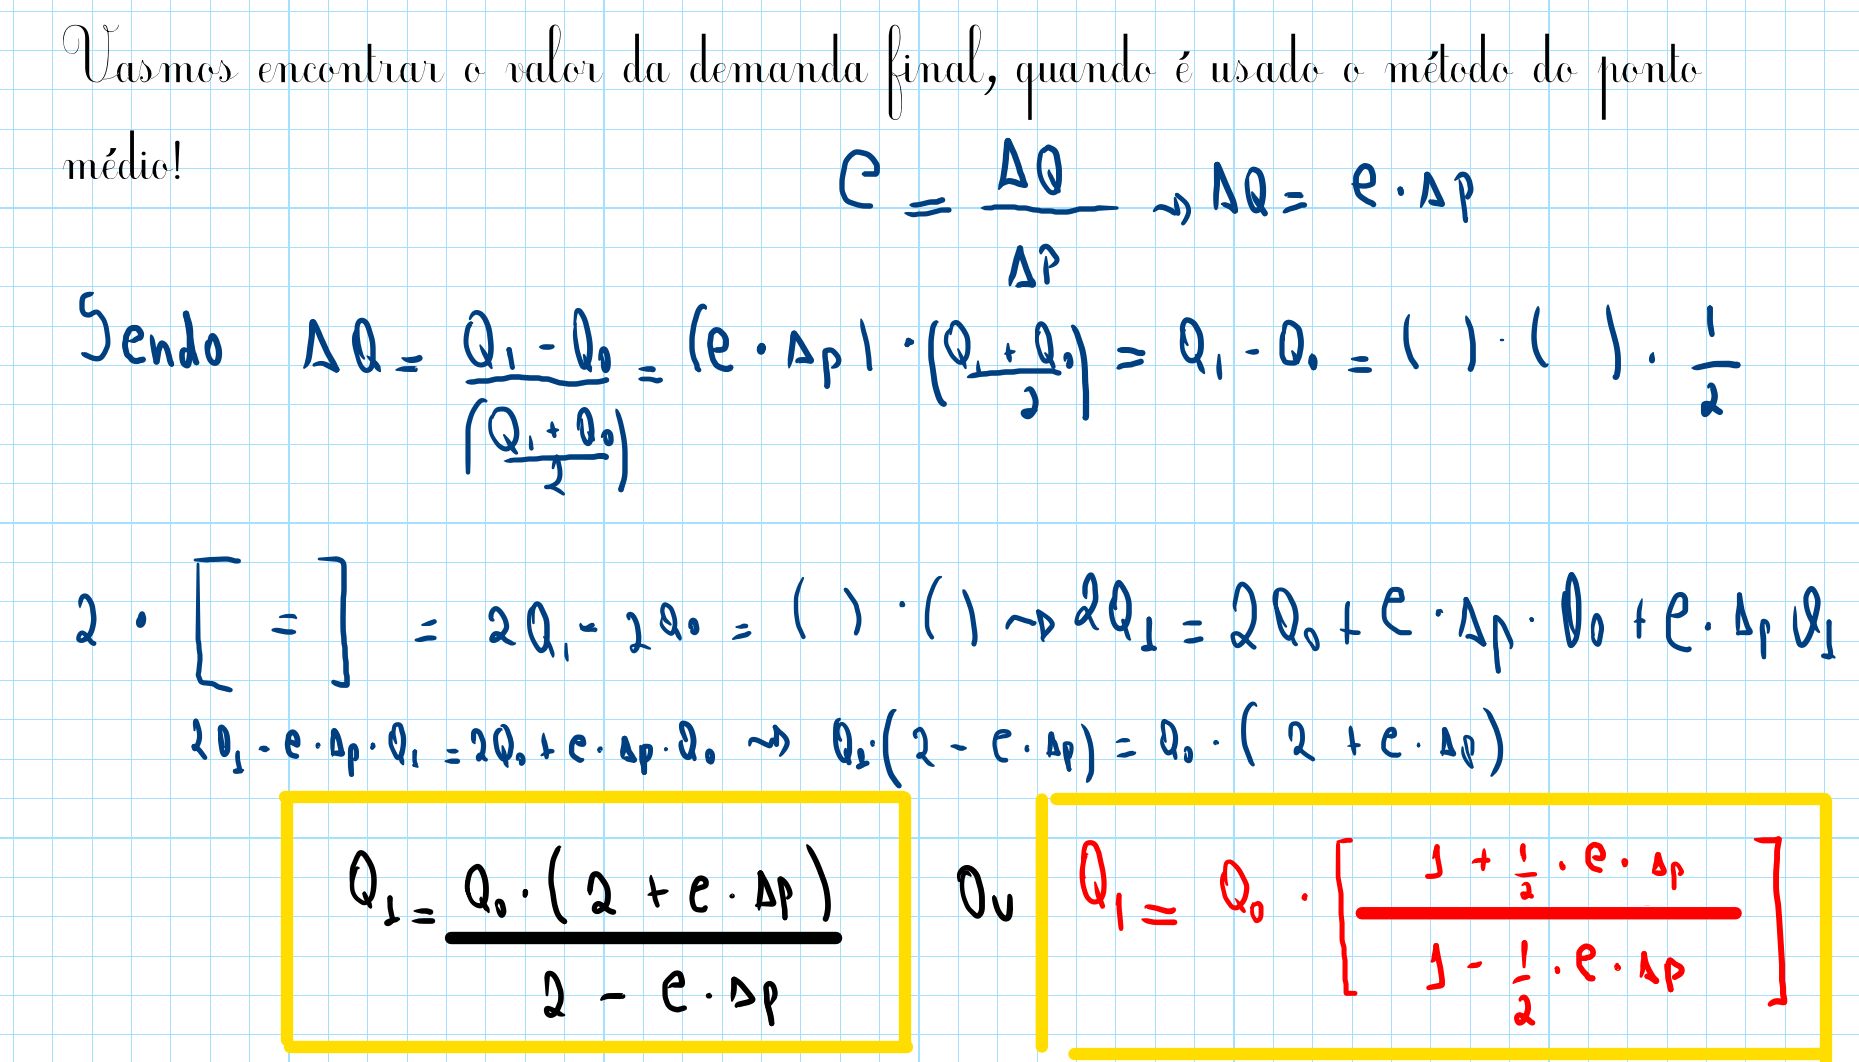 Vasmos encontrar o valor da demanda final, quando é usado o método do ponto
médio!
e = ΔQ / ΔP → ΔQ = e · Δp
Sendo ΔQ = Q₁ - Q₀ / (Q₁ + Q₀ / 2) = (e · Δp) · (Q₁ + Q₀ / 2) = Q₁ - Q₀ = ( ) · ( ) · 1/2
2 · [ = ] = 2Q₁ - 2Q₀ = ( ) · ( ) → 2Q₁ = 2Q₀ + e · Δp · Q₀ + e · Δp Q₁
2Q₁ - e · Δp · Q₁ = 2Q₀ + e · Δp · Q₀ → Q₁ · (2 - e · Δp) = Q₀ · (2 + e · Δp)
Q₁ = Q₀ · (2 + e · Δp) / 2 - e · Δp Ou Q₁ = Q₀ · [1 + 1/2 · e · Δp / 1 - 1/2 · e · Δp]